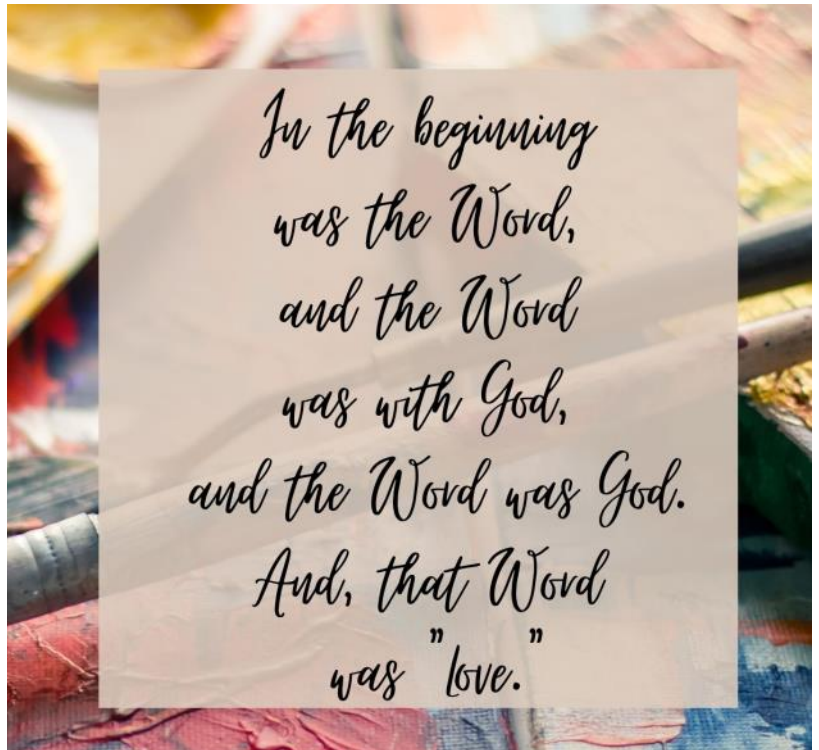 In the beginning
was the Word,
and the Word
was with God,
and the Word was God.
And, that Word
was "Love."